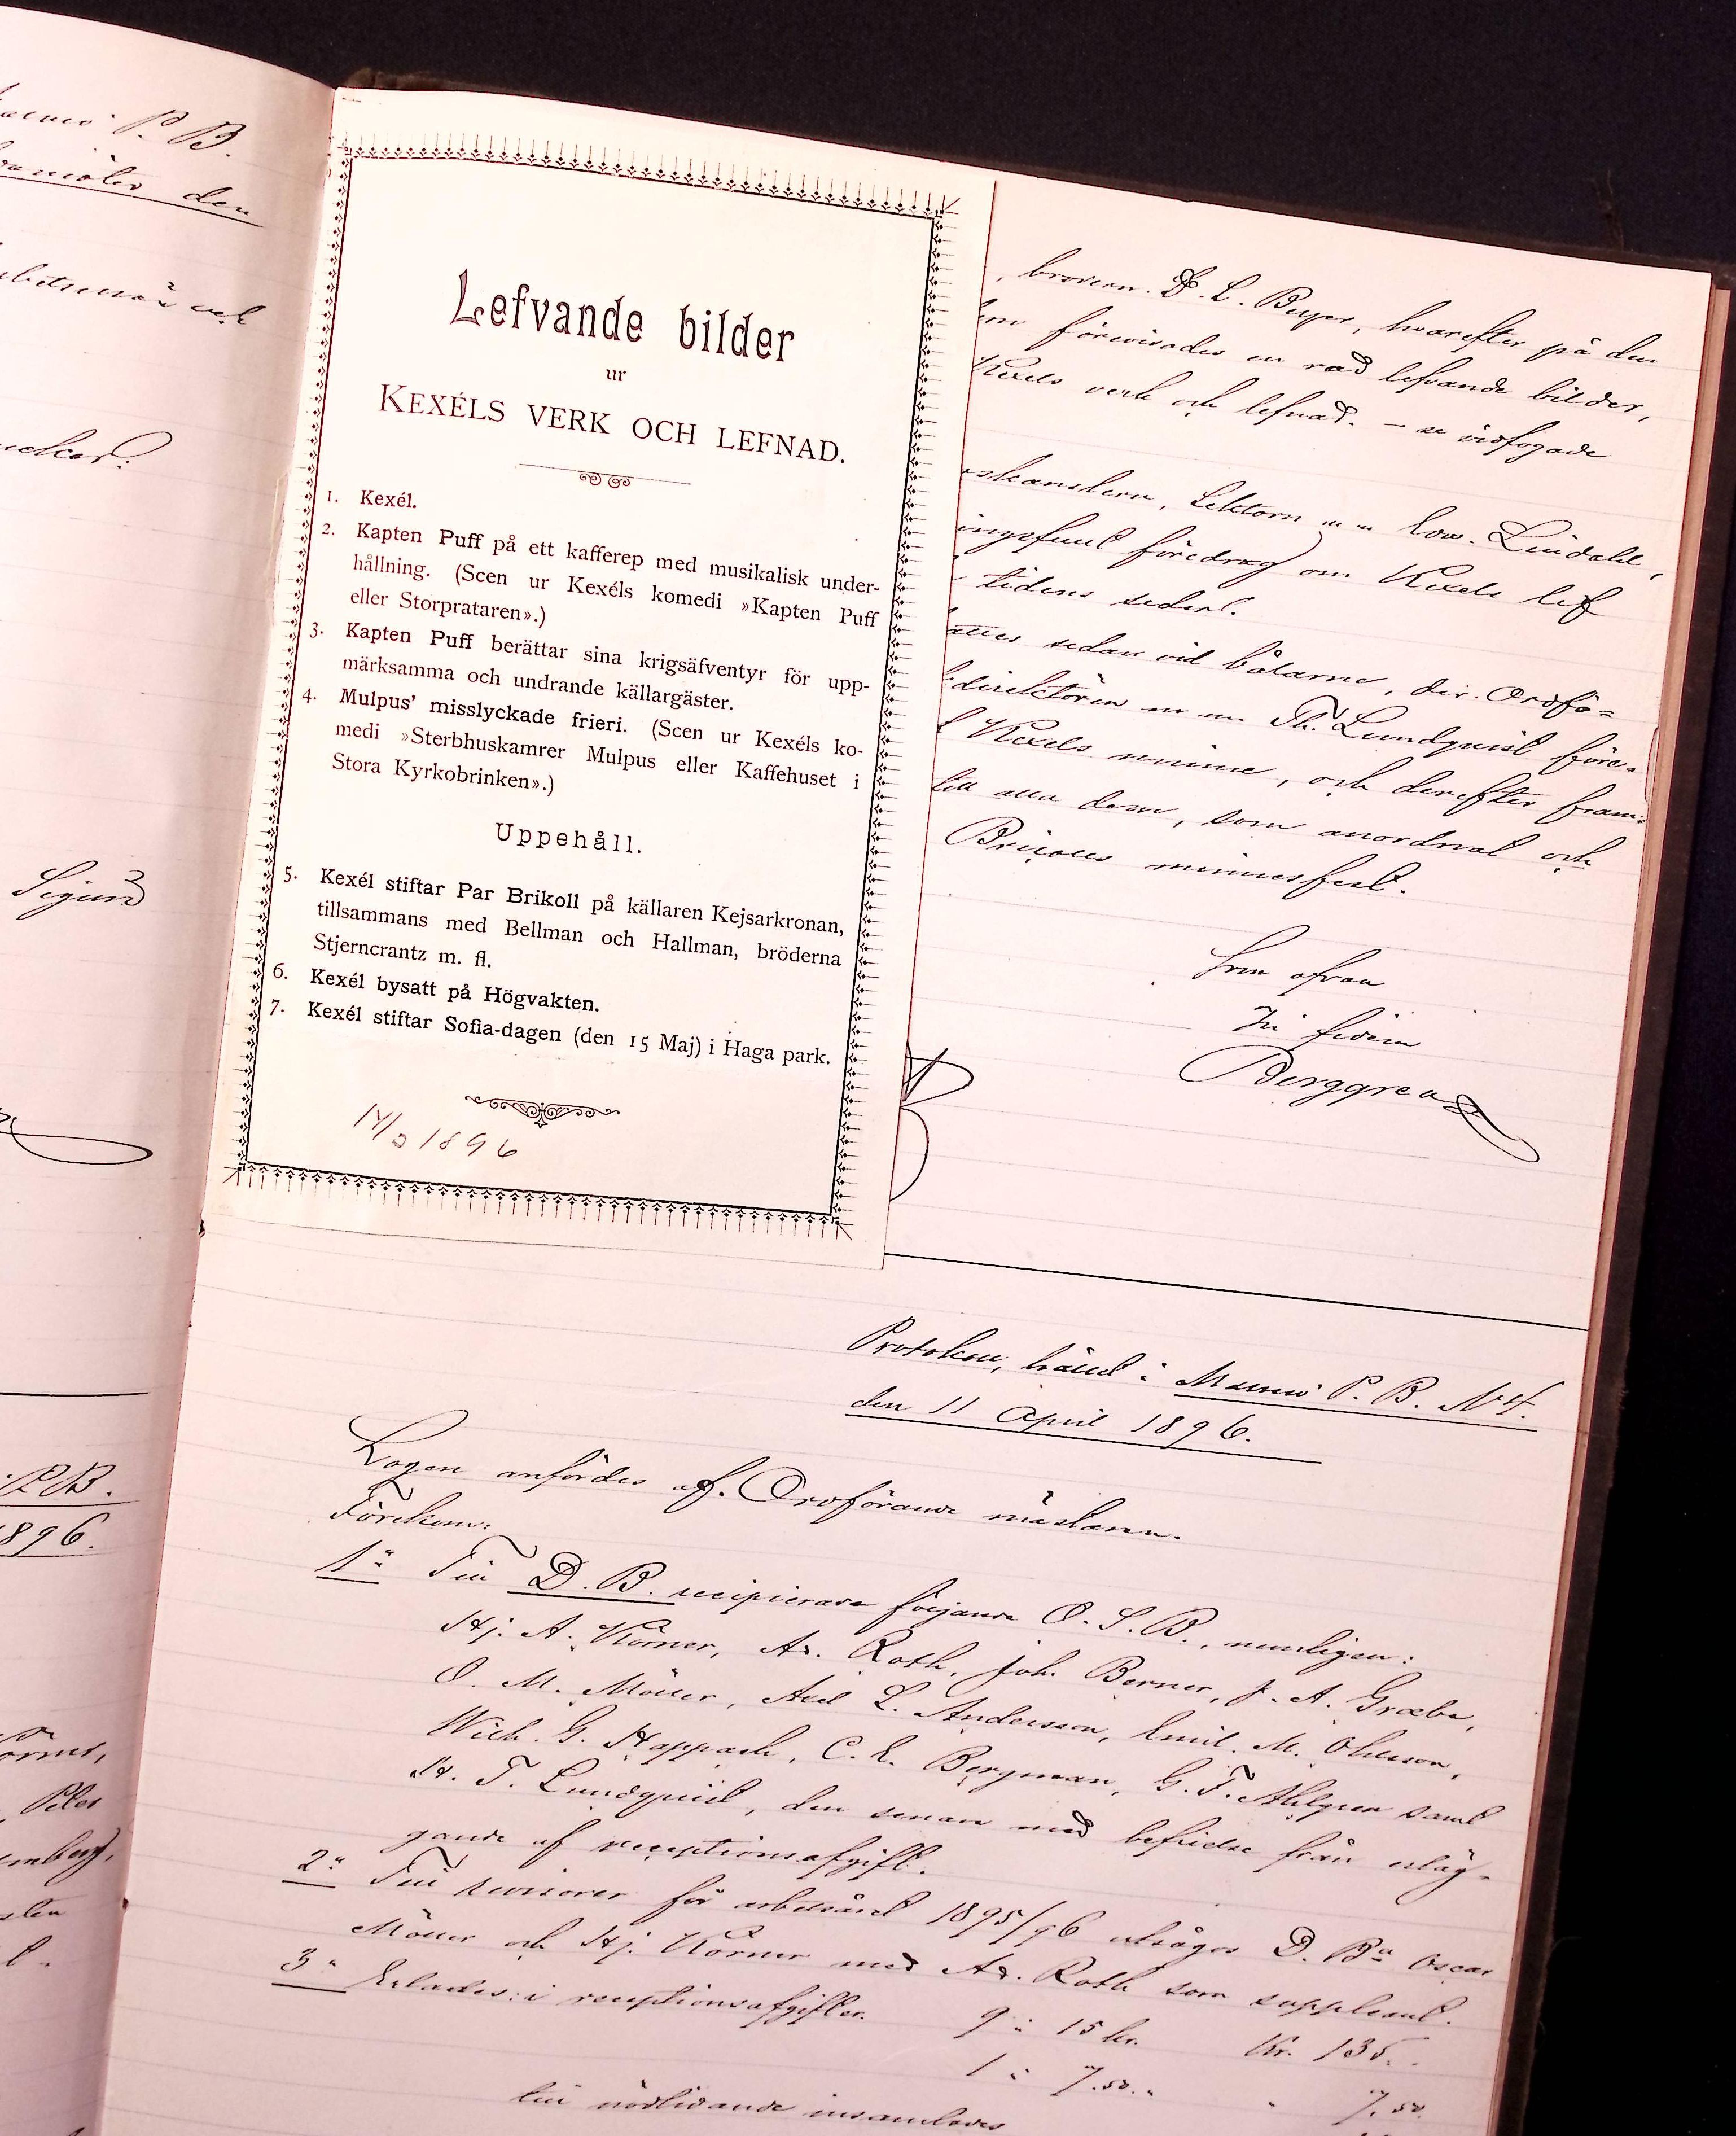 P. B.
den
och
Sigurd
P. B.
1896.
Peter
Lefvande bilder
ur
KEXÉLS VERK OCH LEFNAD.
1. Kexél.
2. Kapten Puff på ett kafferep med musikalisk under-
hållning. (Scen ur Kexéls komedi »Kapten Puff
eller Storprataren».)
3. Kapten Puff berättar sina krigsäfventyr för upp-
märksamma och undrande källargäster.
4. Mulpus' misslyckade frieri. (Scen ur Kexéls ko-
medi »Sterbhuskamrer Mulpus eller Kaffehuset i
Stora Kyrkobrinken».)
Uppehåll.
5. Kexél stiftar Par Brikoll på källaren Kejsarkronan,
tillsammans med Bellman och Hallman, bröderna
Stjerncrantz m. fl.
6. Kexél bysatt på Högvakten.
7. Kexél stiftar Sofia-dagen (den 15 Maj) i Haga park.
1896
hvarefter på den
förevisades en rad lefvande bilder,
Kexéls verk och lefnad. – se vidfogade
Lektorn m m Edw. Lindahl,
föredrag om Kexéls lif
tidens seder.
sedan vid bålarne, der Ordfö=
direktören m m Th. Lundquist före-
Kexéls minne, och derefter fram-
till alla dem, som anordnat och
Bricoles minnesfest.
Som ofvan
In fidem
Berggren
Protokoll, hållet i Malmö P. B. N:o 4.
den 11 April 1896.
Logen anfördes af Ordförande mästaren.
Förekom:
1:o Till D. B. recipierade följande O. S. B., nemligen:
Hj. A. Körner, Ad. Roth, Joh. Berner, J. A. Græbe,
O. M. Möller, Axel L. Andersson, Emil M. Ohlsson,
Wilh. G. Happach, C. E. Bergman, G. F. Ahlgren samt
H. T. Lundquist, den senare med befrielse från erläg-
gande af receptionsafgift.
2:o Till revisorer för arbetsåret 1895/96 utsågos D. B:a Oscar
Möller och Hj. Körner med Ad. Roth som suppleant.
3:o Erlades: i receptionsafgifter. 9 à 15 kr. Kr. 135.
1 à 7.50. 7.50.
till nödlidande insamlades